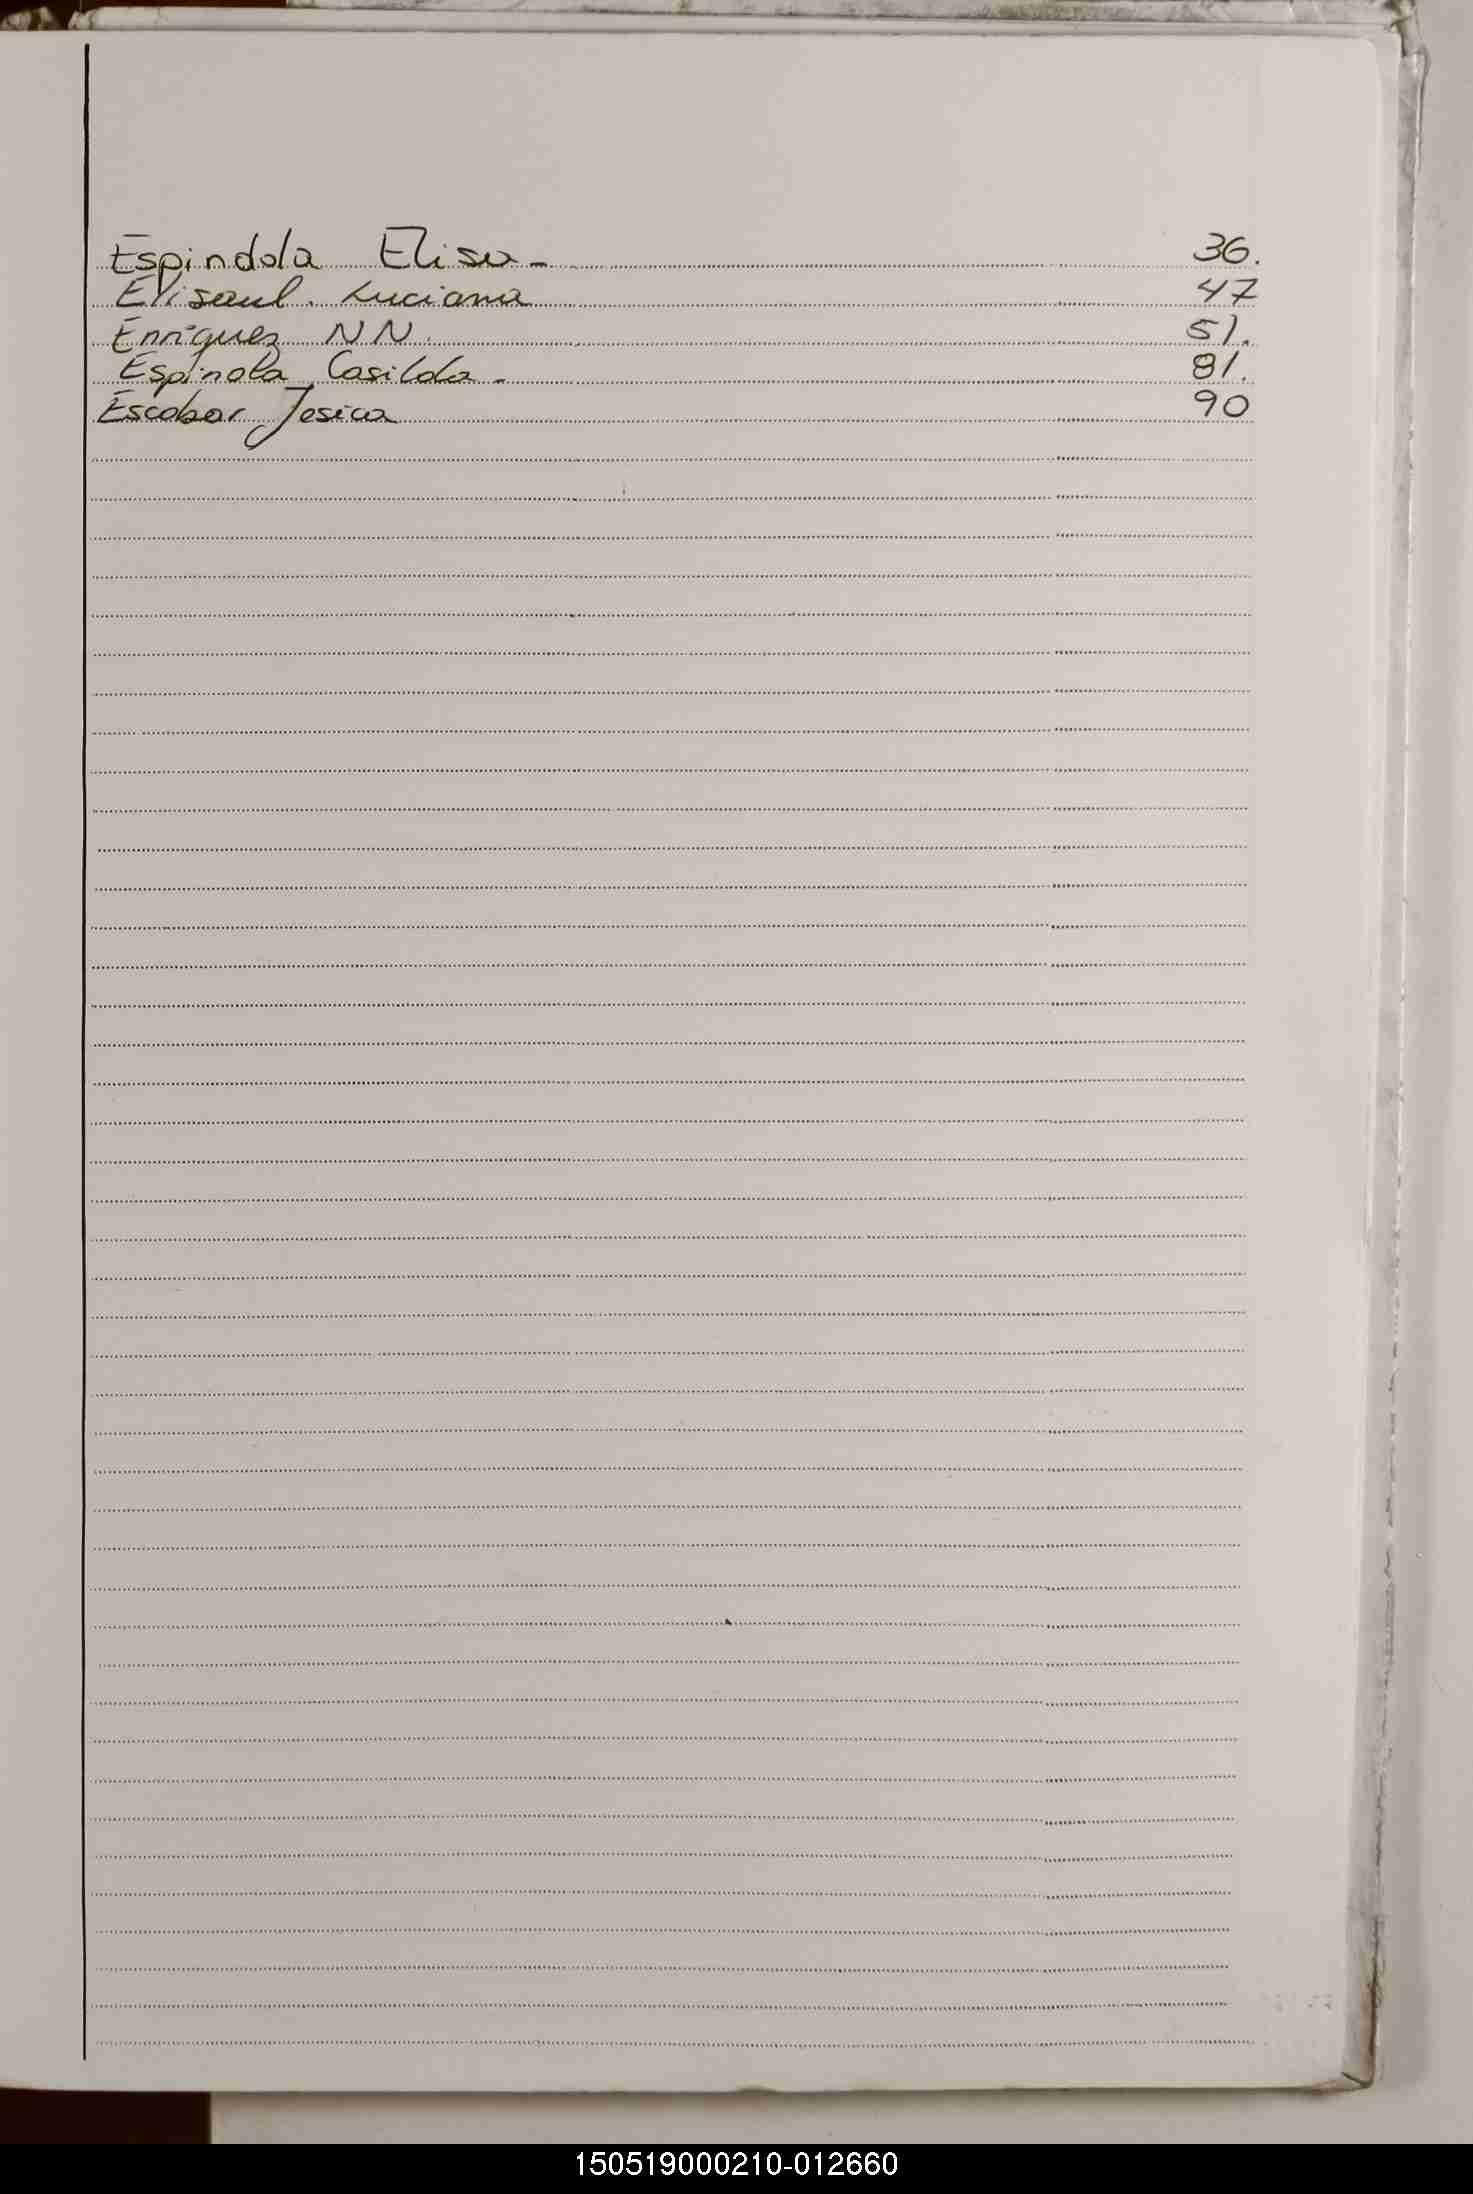 Espindola Elisa - 36.
Elisaul. Luciana 47
Enriquez NN. 51.
Espinola Casilda - 81.
Escobar Jesica 90
150519000210-012660